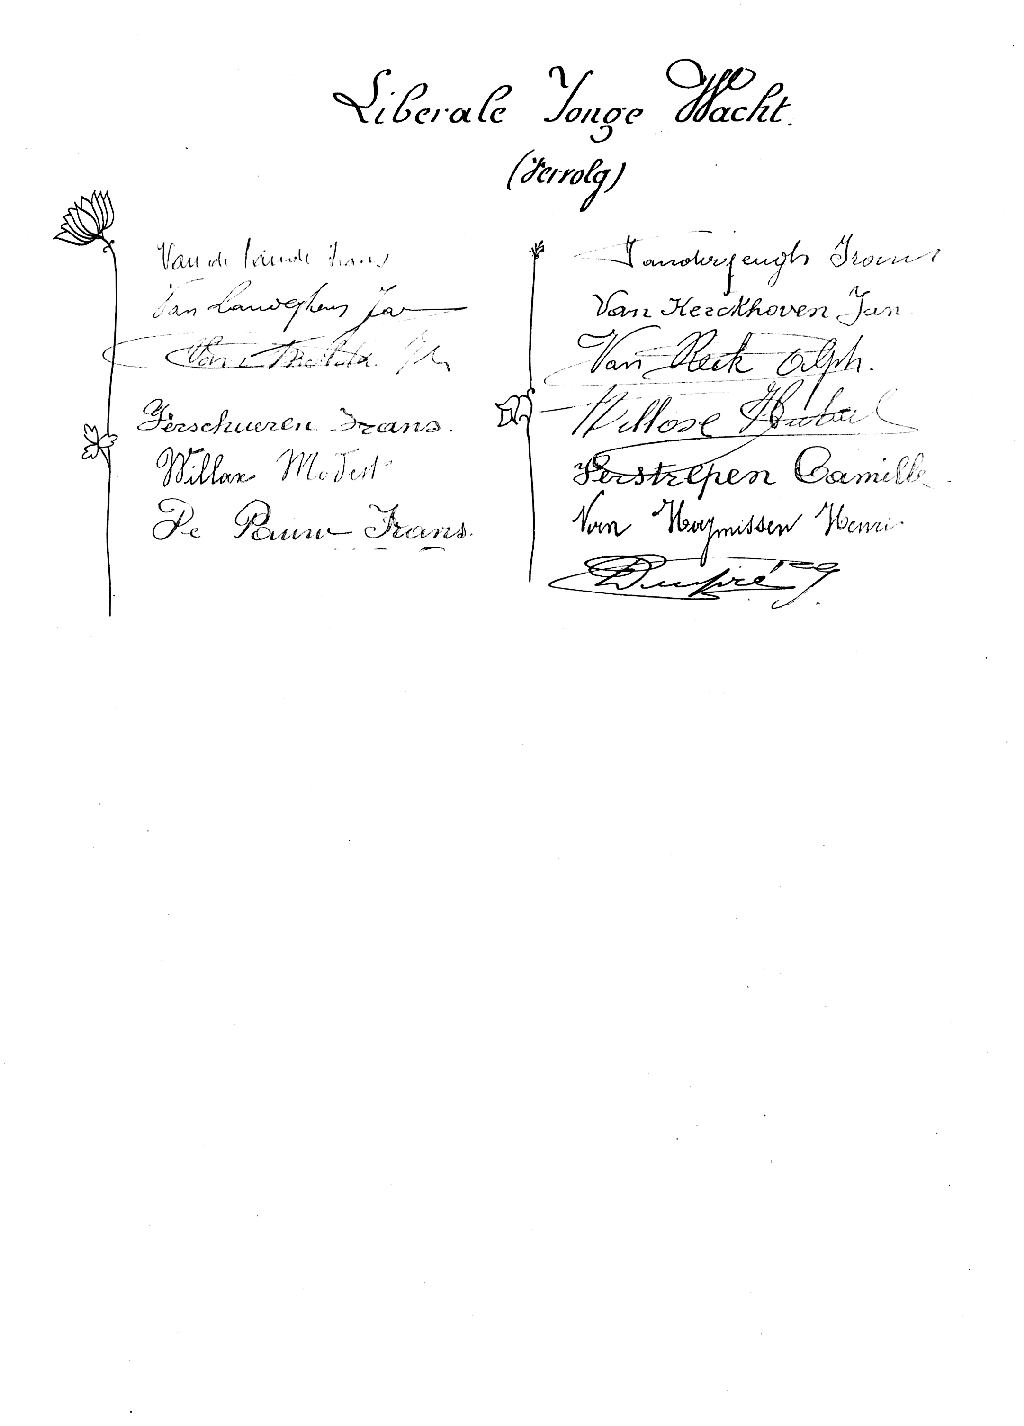 Liberale Jonge Wacht.
(Vervolg)
Van de Frans
Van Lauweghens Jan
Van
Verschueren Frans.
Willax Modest
De Pauw Frans.
Frans
Van Kerckhoven Jan
Van Reck Alph.
Willose Hubert
Verstrepen Camille
Van Huymissen Henri
Dupré